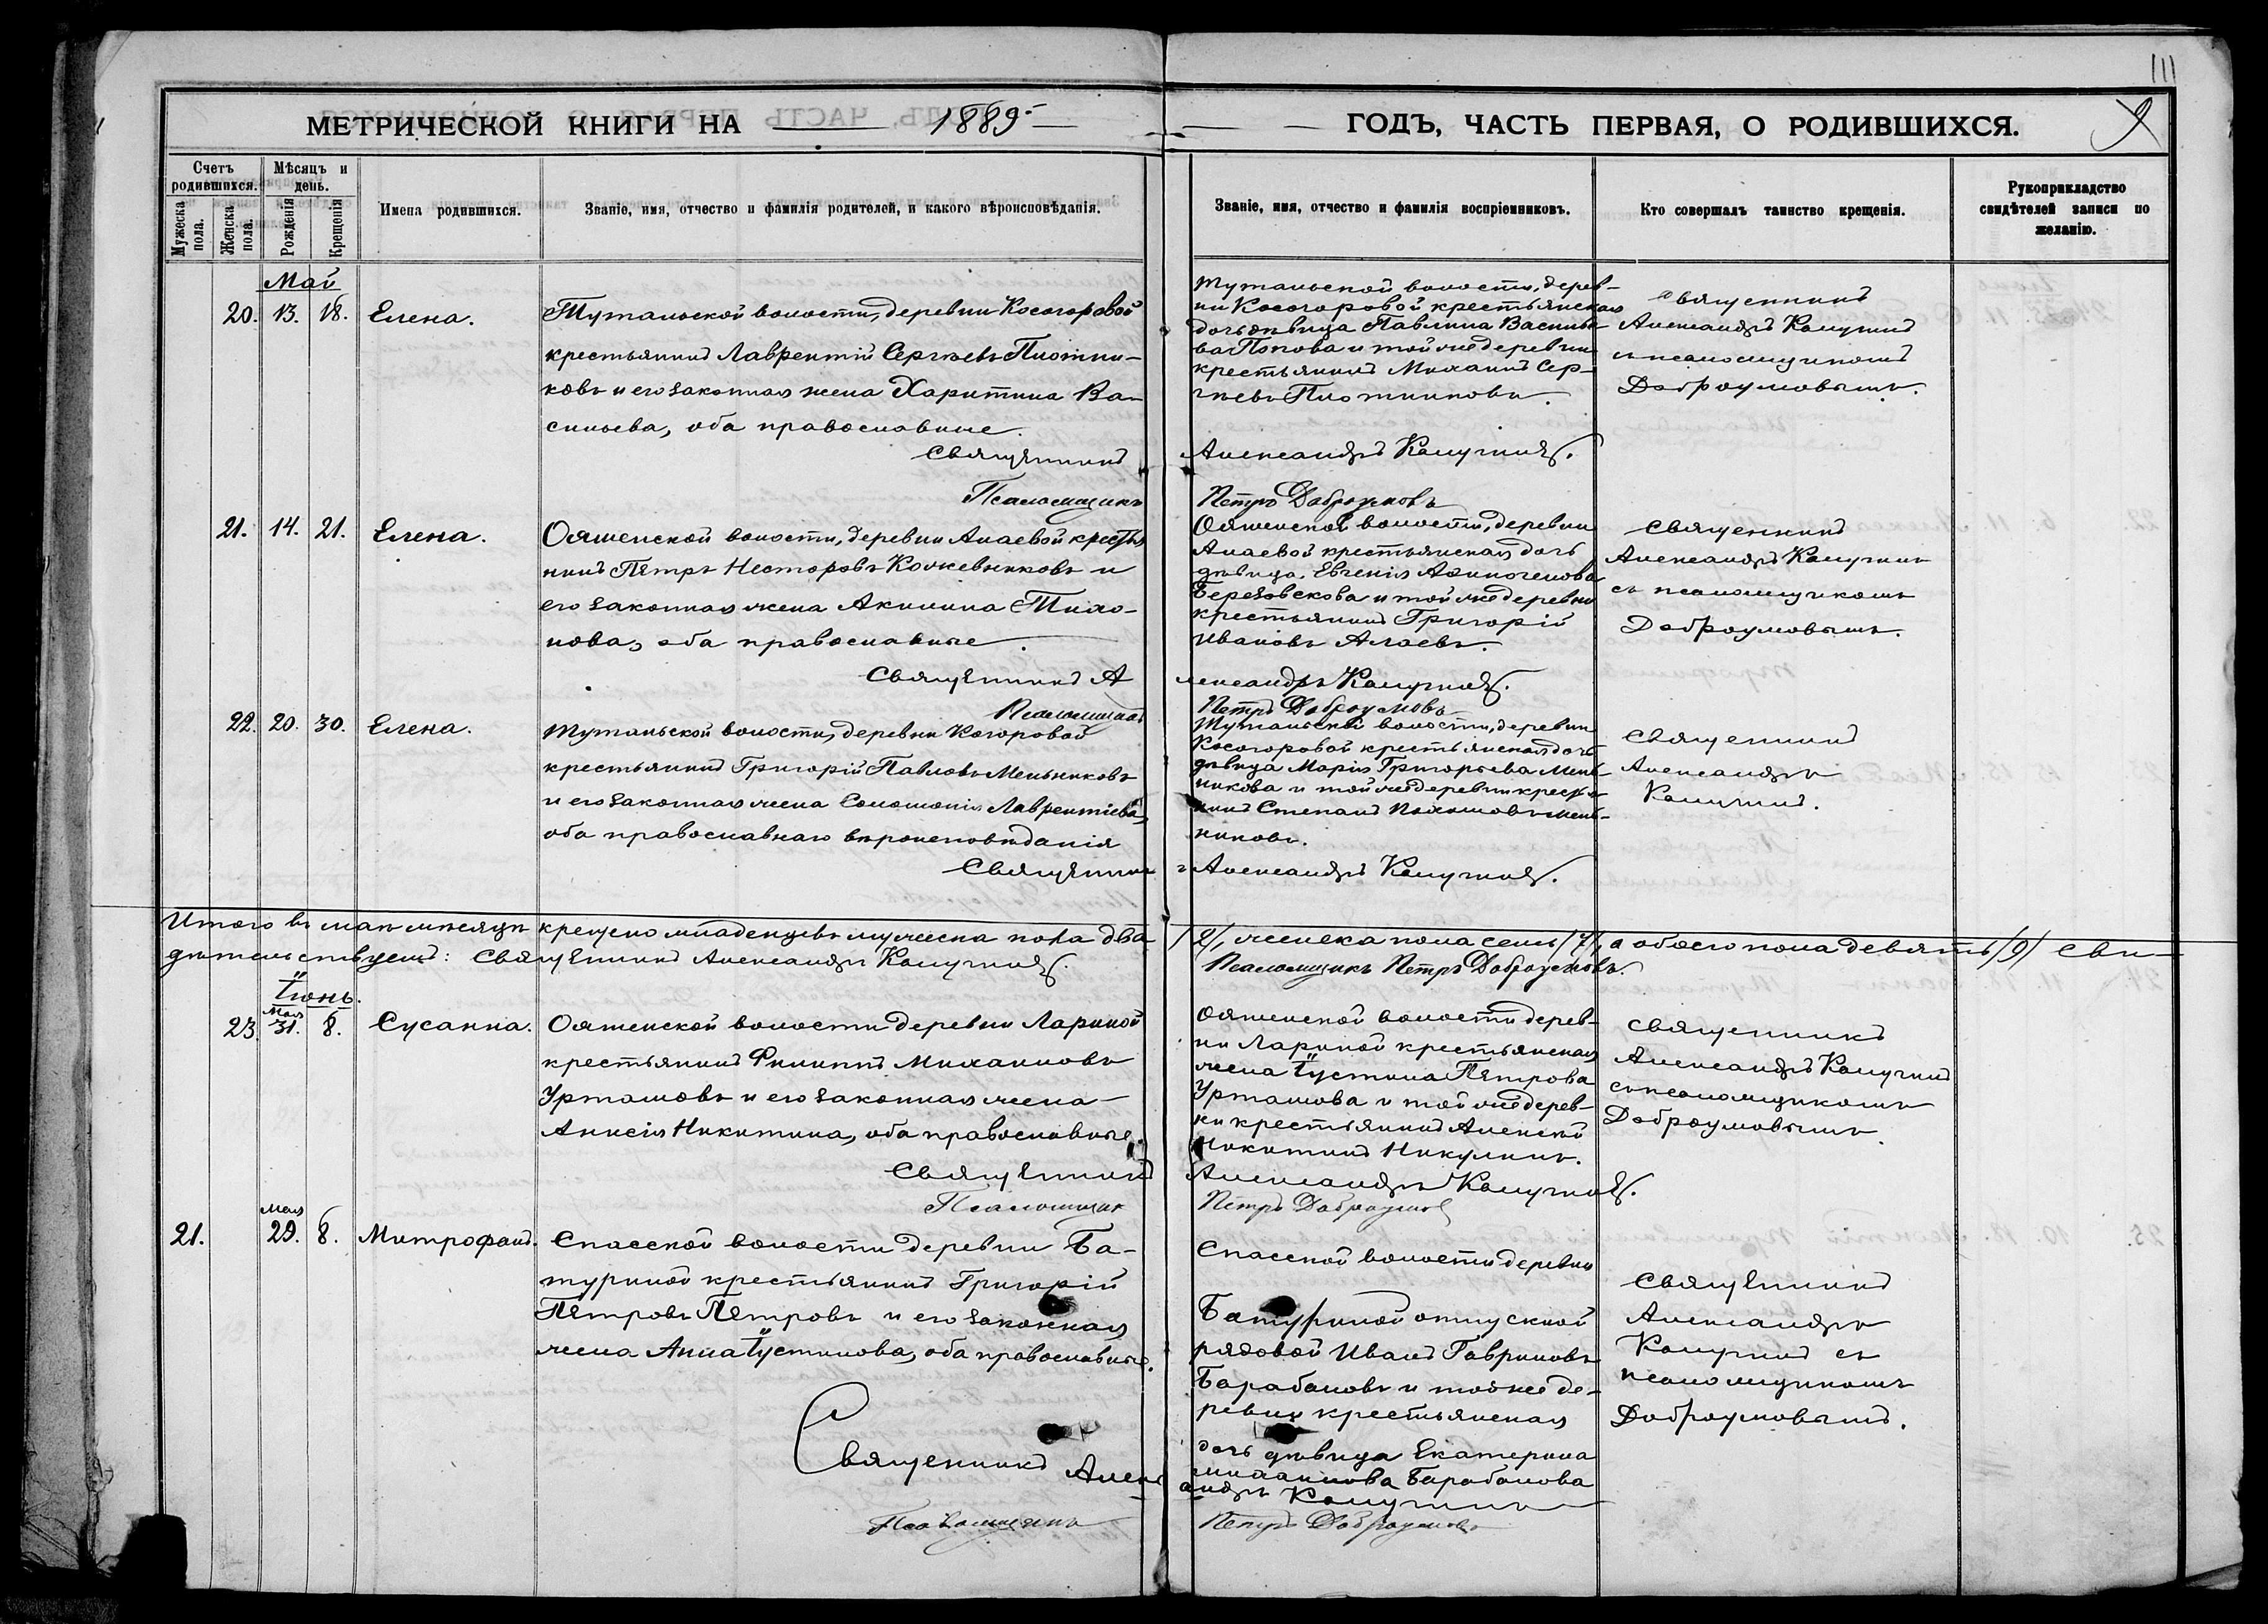 111
9
МЕТРИЧЕСКОЙ КНИГИ НА 1889
ГОДЪ, ЧАСТЬ ПЕРВАЯ, О РОДИВШИХСЯ.
Счетъ родившихся.
Мужеска пола.
Женска пола.
Мѣсяцъ и день.
Рожденія
Крещенія
Имена родившихся.
Званіе, имя, отчество и фамилія родителей, и какого вѣроисповѣданія.
Званіе, имя, отчество и фамилія воспріемниковъ.
Кто совершалъ таинство крещенія.
Рукоприкладство свидѣтелей записи по желанію.
Май
20. 13. 18. Елена.
Тутальской волости, деревни Косогоровой
крестьянинъ Лаврентій Сергѣевъ Плотни-
ковъ и его законная жена Харитина Ва-
сильева, оба православные.
Тутальской волости, дерев-
ни Косогоровой крестьянская
дочь дѣвица Павлина Василье-
ва Попова и той же деревни
крестьянинъ Михаилъ Сер-
гѣевъ Плотниковъ.
Священникъ
Александръ Калугинъ
съ псаломщикомъ
Доброумовымъ.
Священникъ Александръ Калугинъ.
Псаломщикъ Петръ Доброумовъ
21. 14. 21. Елена.
Ояшенской волости, деревни Алаевой кресть
нинъ Петръ Несторовъ Кожевниковъ и
его законная жена Акилина
нова, оба православные.
Ояшенской волости, деревни
Алаевой крестьянская дочь
дѣвица Евгенія Афиногенова
Березовскова и той же деревни
крестьянинъ Григорій
Ивановъ Алаевъ.
Священникъ
Александръ Калугинъ
съ псаломщикомъ
Доброумовымъ.
Священникъ Александръ Калугинъ.
Псаломщикъ Петръ Доброумовъ
22. 20. 30. Елена.
Тутальской волости, деревни Когоровой
крестьянинъ Григорій Павловъ Мельниковъ
и его законная жена Соломонія Лаврентіева,
оба православнаго вѣроисповѣданія
Тутальской волости, деревни
Косогоровой крестьянская дочь
дѣвица Марія Григорьева Мель-
никова и той же деревни кресть
нинъ Степанъ Мель-
никовъ.
Священникъ
Александръ
Калугинъ.
Священникъ Александръ Калугинъ.
Итого въ маѣ мѣсяцѣ крещено младенцевъ мужеска пола два /2/, женска пола семь /7/, а обоего пола девять /9/ сви-
дѣтельствуемъ: Священникъ Александръ Калугинъ. Псаломщикъ Петръ Доброумовъ.
Іюнь.
23. Мая 31. 8. Сусанна.
Ояшенской волости деревни Лариной
крестьянинъ Филиппъ Михаиловъ
Урташовъ и его законная жена
Анисія Никитина, оба православные.
Ояшенской волости дерев-
ни Лариной крестьянская
жена Іустина Петрова
Урташова и той же дерев-
ни крестьянинъ Алексѣй
Никитинъ Никулинъ.
Священникъ
Александръ Калугинъ
съ псаломщикомъ
Доброумовымъ.
Священникъ Александръ Калугинъ.
Псаломщик Петръ Доброумов
21. Мая 29. 8. Митрофанъ.
Спасской волости деревни Ба-
туриной крестьянинъ Григорій
Петровъ Петровъ и его законная
жена Анна Іустинова, оба православные.
Спасской волости деревни
Батуриной отпускной
рядовой Иванъ Гавриловъ
Барабановъ и той же де-
ревни крестьянская
дочь дѣвица Екатерина
Барабанова
Священникъ
Александръ
Калугинъ съ
псаломщикомъ
Доброумовымъ.
Священникъ Александръ Калугинъ
Псаломщикъ Петръ Доброумовъ